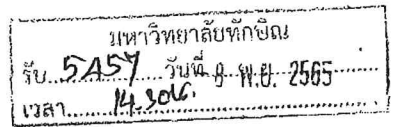 มหาวิทยาลัยทักษิณ
รับ...5457...วันที่ 8 พ.ย. 2565
เวลา...14.30น.